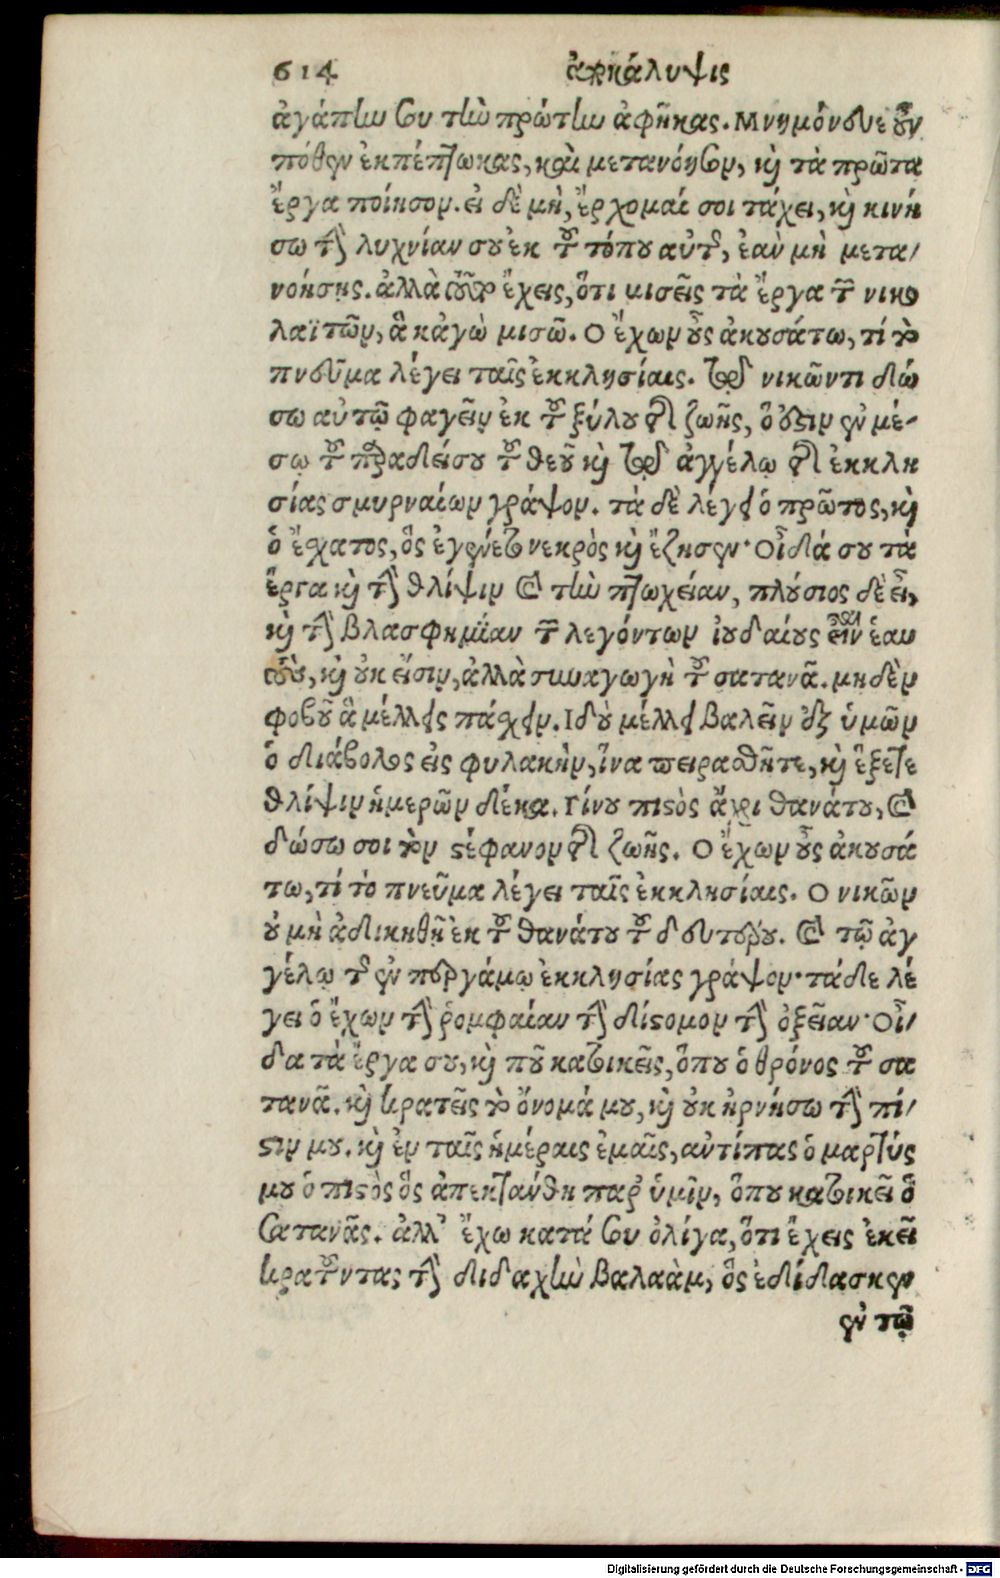 614 ἀποκάλυψις
ἀγάπην σου τὴν πρώτην ἀφῆκας. Μνημόνευε οὖν
πόθεν ἐκπέπτωκας, καὶ μετανόησον, καὶ τὰ πρῶτα
ἔργα ποίησον. εἰ δὲ μὴ, ἔρχομαί σοι τάχει, καὶ κινή
σω τὴν λυχνίαν σου ἐκ τοῦ τόπου αὐτῆς, ἐαν μὴ μετα/
νοήσῃς. ἀλλὰ τοῦτο ἔχεις, ὅτι μισεῖς τὰ ἔργα τῶν νικο
λαϊτῶν, ἃ κἀγὼ μισῶ. Ο ἔχων οὖς ἀκουσάτω, τί το
πνεῦμα λέγει ταῖς ἐκκλησίαις. τῷ νικῶντι δώ
σω αὐτῷ φαγεῖν ἐκ τοῦ ξύλου τῆς ζωῆς, ὅ ἐστιν ἐν μέ-
σῳ τοῦ παραδείσου τοῦ θεοῦ καὶ τῷ ἀγγέλῳ τῆς ἐκκλη
σίας σμυρναίων γράψον. τὰ δὲ λέγει ὁ πρῶτος, καὶ
ὁ ἔσχατος, ὃς ἐγένετο νεκρὸς καὶ ἔζησεν· Οἶδά σου τὰ
ἔργα καὶ τὴν θλίψιν καὶ τὴν πτωχείαν, πλούσιος δὲ εἶ,
καὶ τὴν βλασφημίαν τῶν λεγόντων ἰουδαίους εἶναι ἑαυ
τοὺς, καὶ οὐκ εἴσιν, ἀλλὰ συναγωγὴ τοῦ σατανᾶ. μηδὲν
φοβοῦ ἃ μέλλεις πάσχειν. Ιδοὺ μέλλει βαλεῖν ἐξ ὑμῶν
ὁ διάβολος εἰς φυλακὴν, ἵνα πειρασθῆτε, καὶ ἕξετε
θλίψιν ἡμερῶν δέκα. Γίνου πιστὸς ἄχρι θανάτου, καὶ
δώσω σοι τὸν στέφανον τῆς ζωῆς. Ο ἔχων οὖς ἀκουσά
τω, τί τὸ πνεῦμα λέγει ταῖς ἐκκλησίαις. Ο νικῶν
οὐ μὴ ἀδικηθῇ ἐκ τοῦ θανάτου τοῦ δευτέρου. καὶ τῷ ἀγ
γέλῳ τῆς ἐν περγάμῳ ἐκκλησίας γράψον· τάδε λέ
γει ὁ ἔχων τὴν ῥομφαίαν τὴν δίστομον τὴν ὀξεῖαν· Οἶ/
δα τὰ ἔργα σου, καὶ ποῦ κατοικεῖς, ὅπου ὁ θρόνος τοῦ σα
τανᾶ. καὶ κρατεῖς το ὄνομά μου, καὶ οὐκ ἠρνήσω τὴν πί/
στιν μου. καὶ ἐν ταῖς ἡμέραις ἐμαῖς, ἀντίπας ὁ μαρτύς
μου ὁ πιστὸς ὃς ἀπεκτάνθη παρ᾽ ὑμῖν, ὅπου κατοικεῖ ὁ
σατανᾶς. ἀλλ᾽ ἔχω κατά σου ὀλίγα, ὅτι ἔχεις ἐκεῖ
κρατοῦντας τὴν διδαχὴν βαλαὰμ, ὃς ἐδίδασκεν
ἐν τῷ
Digitalisierung gefördert durch die Deutsche Forschungsgemeinschaft - DFG